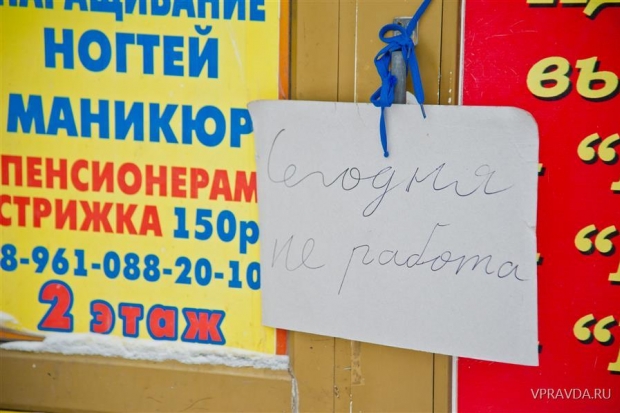 НАРАЩИВАНИЕ
НОГТЕЙ
МАНИКЮР
ПЕНСИОНЕРАМ
СТРИЖКА 150р
8-961-088-20-10
2 этаж
Сегодня
не работа
вы
VPRAVDA.RU